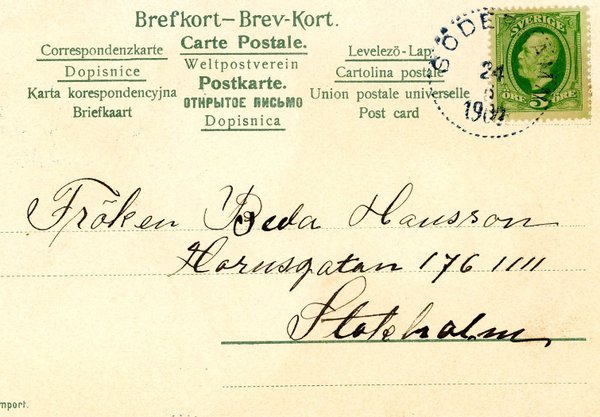 Brefkort–Brev-Kort.
Correspondenzkarte
Carte Postale.
Levelezö-Lap
Dopisnice
Weltpostverein
Cartolina postale
Karta korespondencyjna
Postkarte.
Union postale universelle
Briefkaart
ОТКРЫТОЕ ПИСЬМО
Post card
Dopisnica
SVERIGE
5
ÖRE ÖRE
SÖDE
24
1907
Fröken Beda Hansson
Hornsgatan 176 1111
Stokholm
mport.